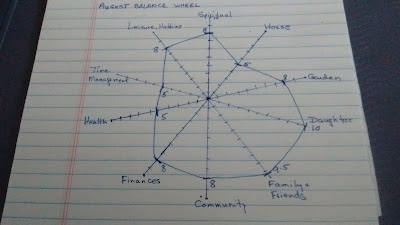 AUGUST BALANCE WHEEL
Spiritual
Leisure, Hobbies
House
8
8
5
8
Garden
Time
Management
5
Health
5
Daughter
10
8
Finances
8
Community
9.5
Family +
Friends